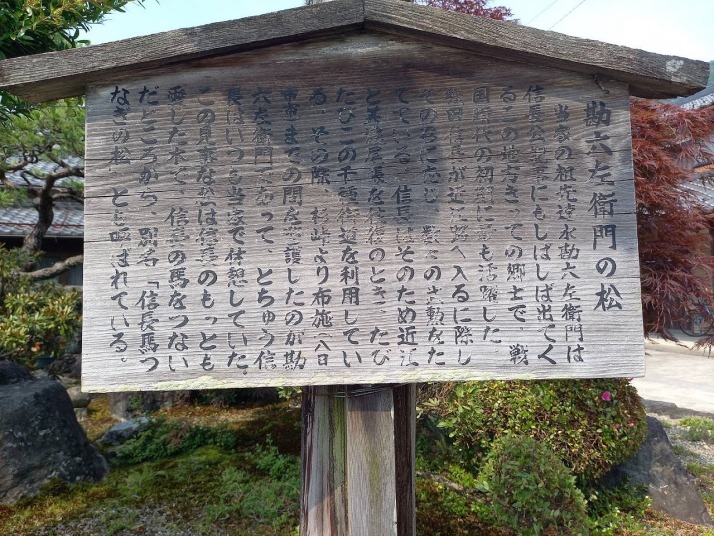 勘六左衛門の松
当家の祖先速水勘六左衛門は
信長公記等にもしばしば出てく
るこの地方きっての郷士で、戦
国時代の初期に最も活躍した。
織田信長が近江路へ入るに際し
その命に応じ、数々の武勲をた
てている。信長はそのため近江
と美濃尾張を往復のとき、たび
たびこの千種街道を利用してい
る。その際、杉峠より布施、八日
市までの間を守護したのが勘
六左衛門であって、とちゅう信
長はいつも当家で休憩していた。
この見事な松は信長のもっとも
愛した木で、信長の馬をつない
だところから、別名「信長馬つ
なぎの松」とも呼ばれている。